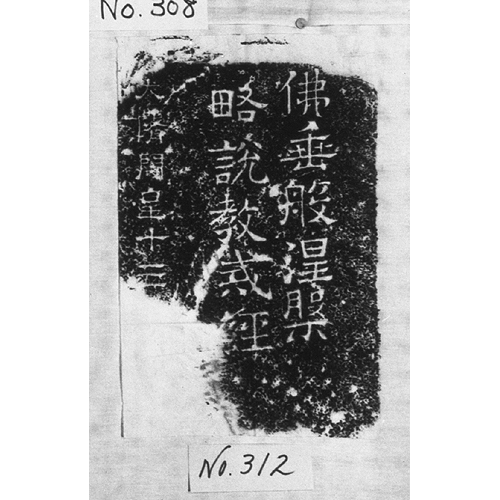 No. 308
佛垂般涅槃
略說教戒經
大隋開皇十三
No. 312